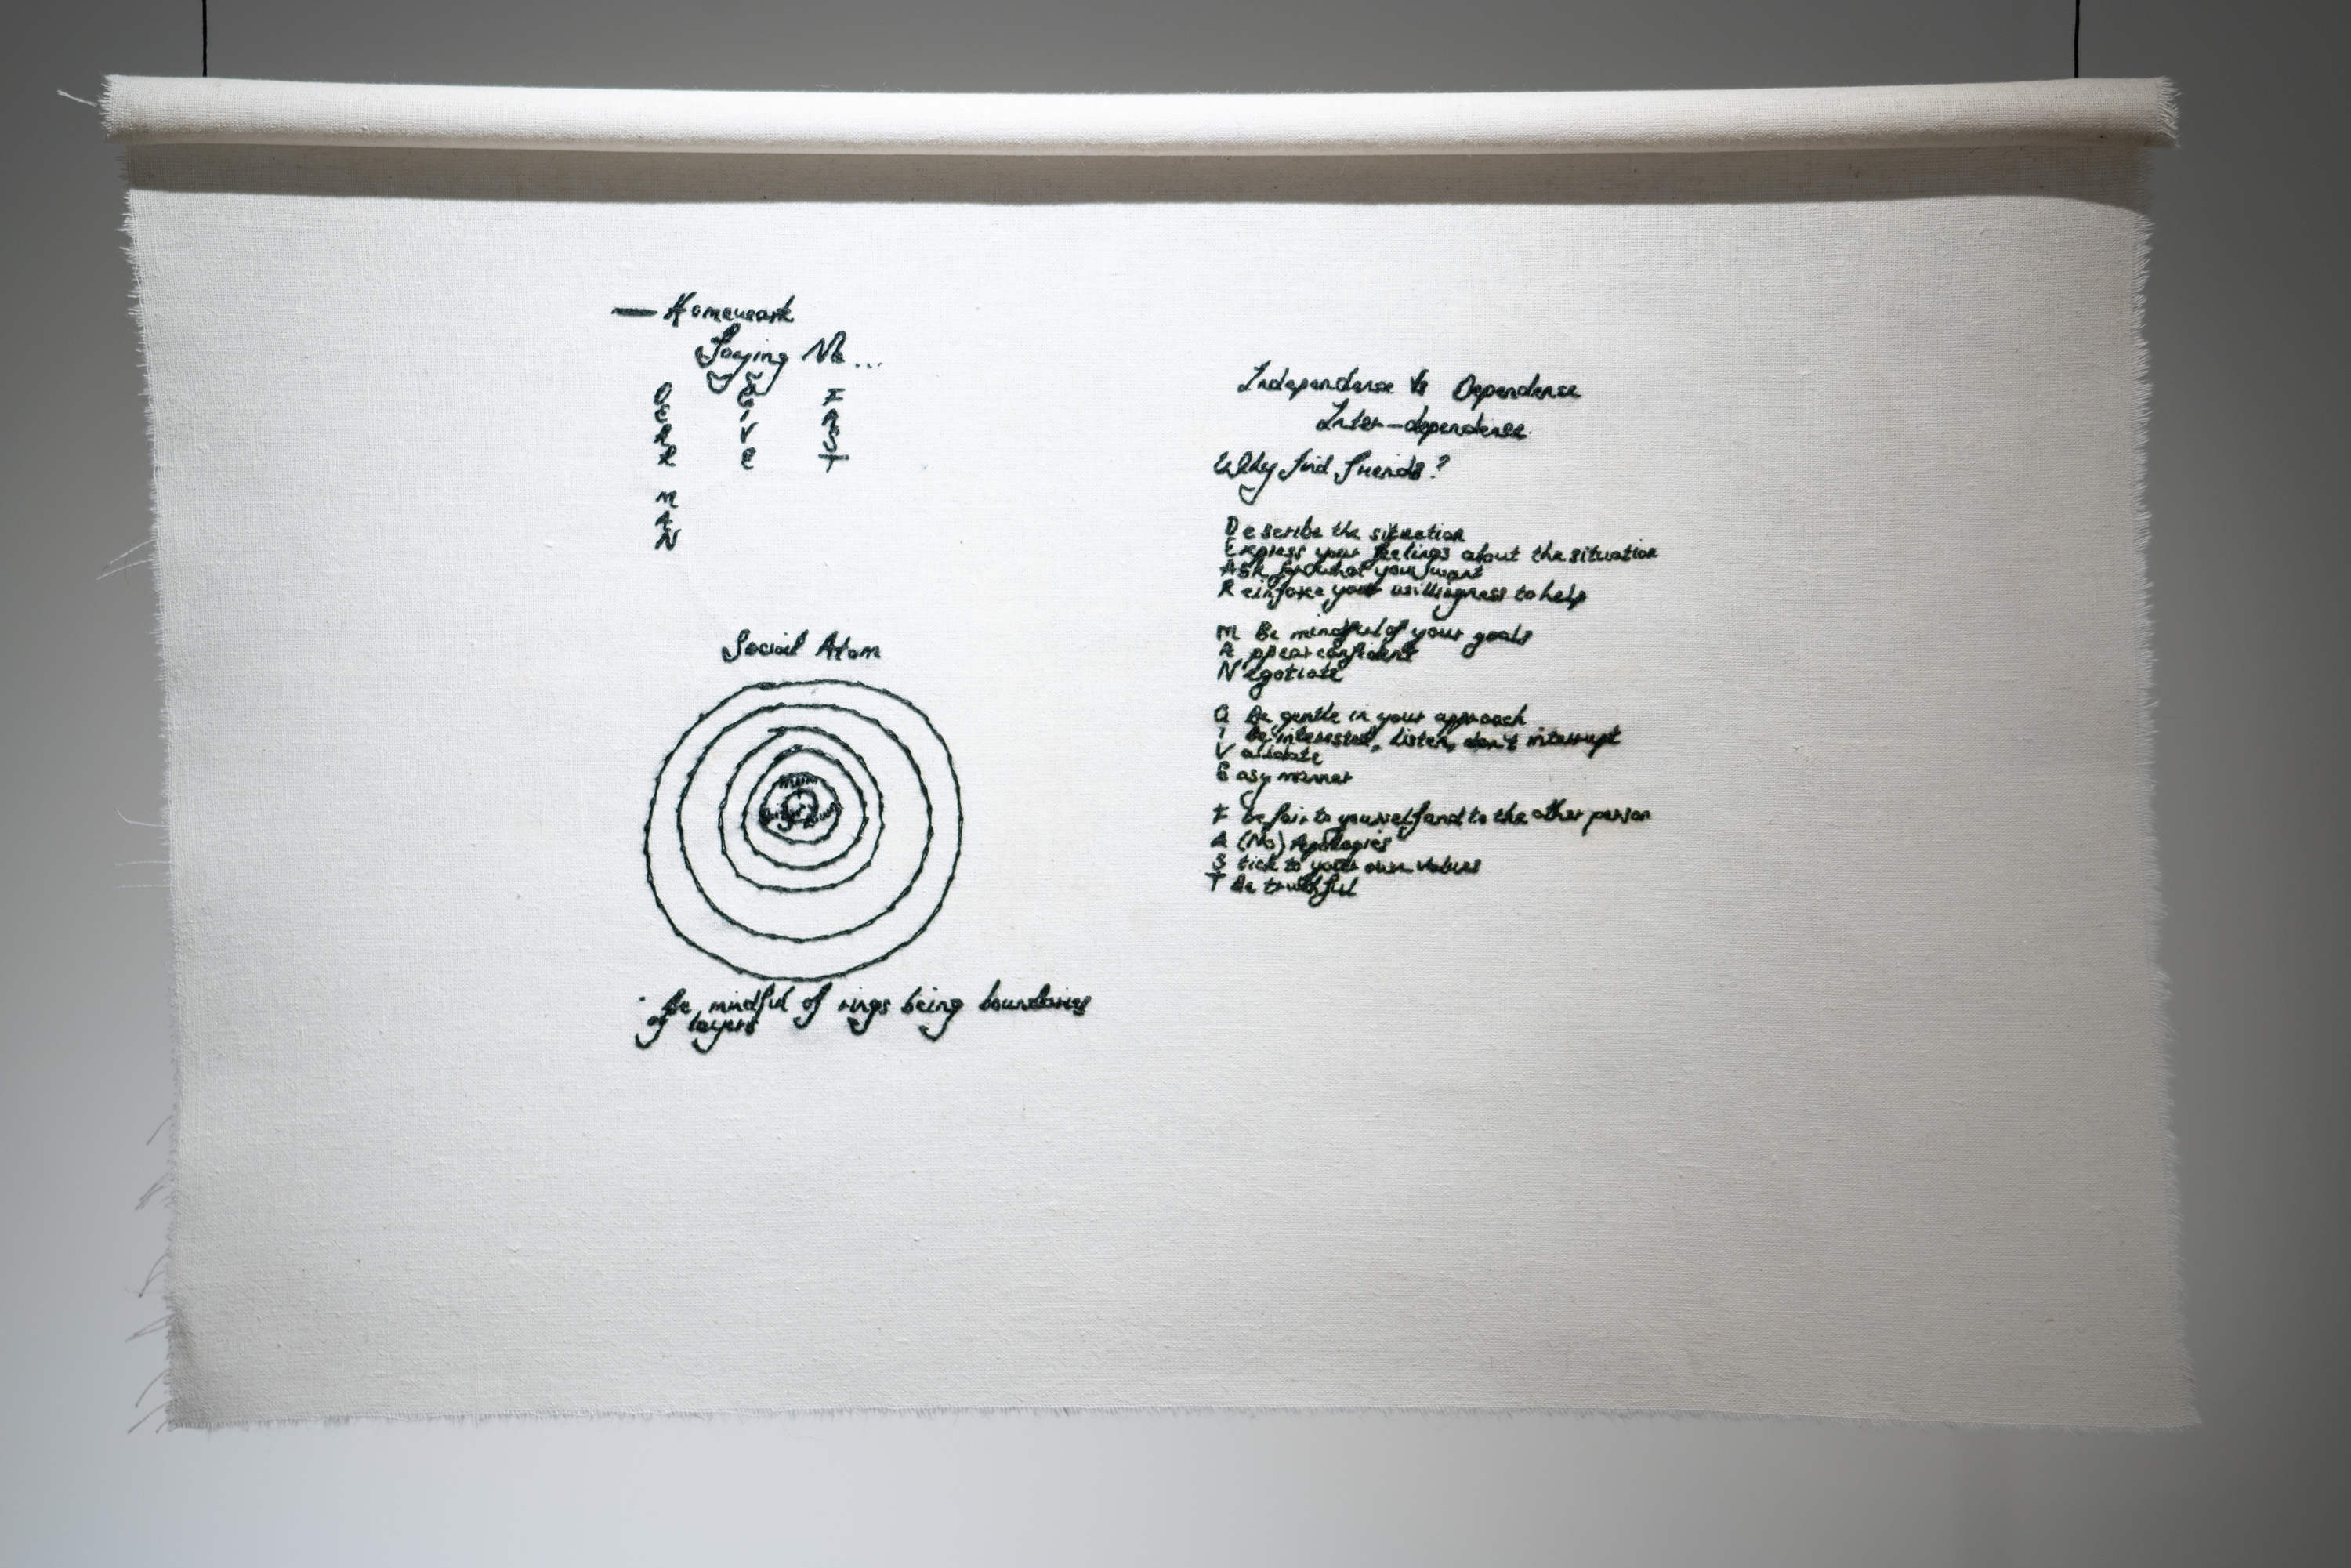 — Homework
Saying No...
D G F
E I A
A V S
R E T
M
A
N
Social Atom
mum
· Be mindful of rings being boundaries
of layers
Independense Vs Dependense
Inter-dependense
Why find friends?
Describe the situation
Express your feelings about the situation
Ask for what you want
Reinforce your willingness to help
M Be mindful of your goals
Appear confident
Negotiate
G Be gentle in your approach
I Be interested, listen, don't interrupt
Validate
Easy manner
F be fair to yourself and to the other person
A (No) Apologies
Stick to your own values
T Be truthful